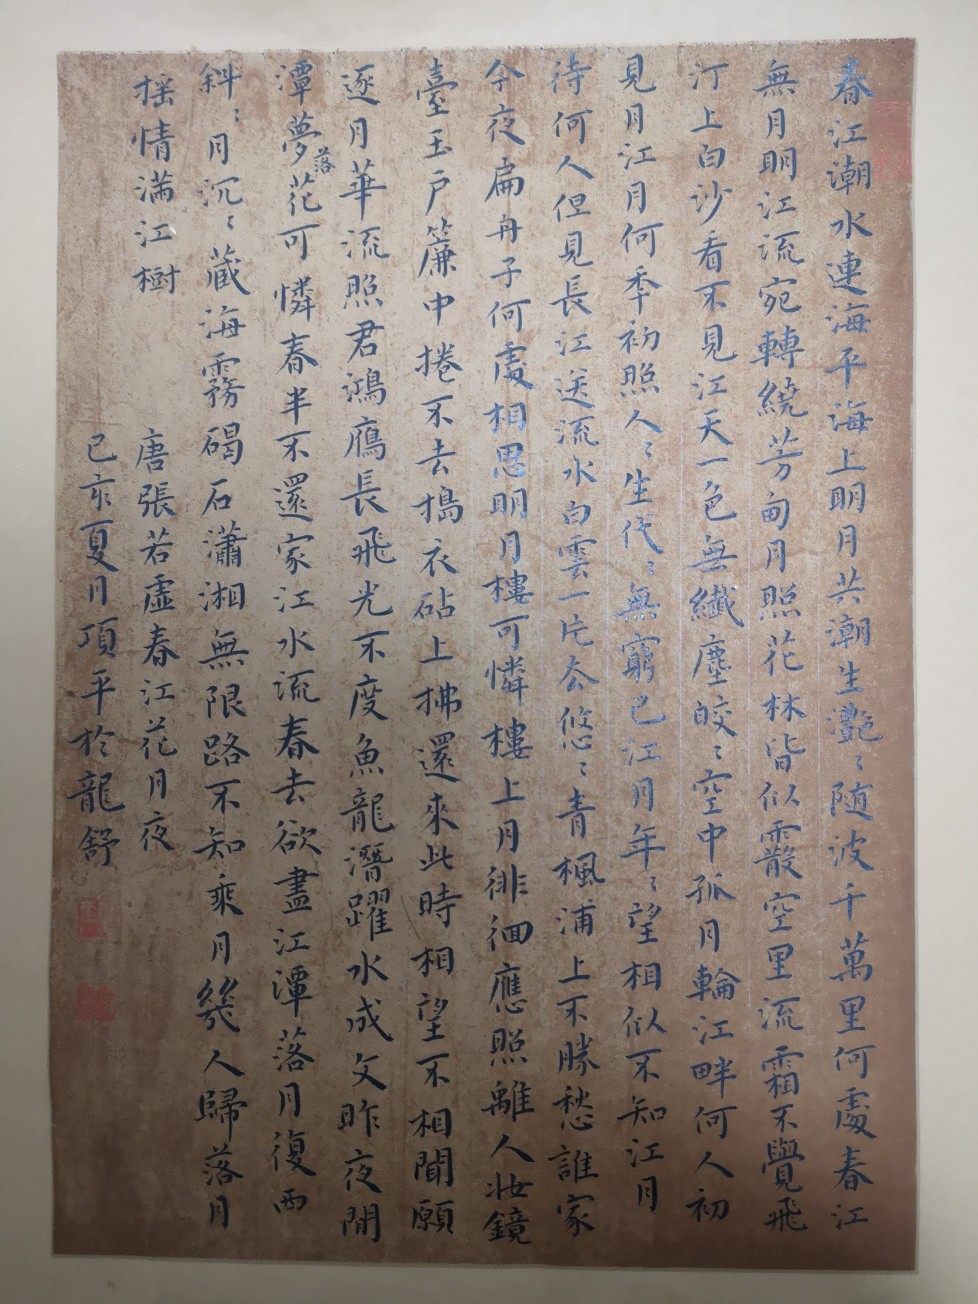 春江潮水連海平海上明月共潮生灩〻随波千萬里何處春江
無月明江流宛轉繞芳甸月照花林皆似霰空里流霜不覺飛
汀上白沙看不見江天一色無纖塵皎〻空中孤月輪江畔何人初
見月江月何秊初照人〻生代〻無窮已江月年〻望相似不知江月
待何人但見長江送流水白雲一片去悠〻青楓浦上不勝愁誰家
今夜扁舟子何處相思明月樓可憐樓上月徘徊應照離人妝鏡
臺玉戶簾中捲不去搗衣砧上拂還來此時相望不相聞願
逐月華流照君鴻鴈長飛光不度魚龍潛躍水成文昨夜閒
潭夢落花可憐春半不還家江水流春去欲盡江潭落月復西
斜〻月沉〻藏海霧碣石瀟湘無限路不知乘月幾人歸落月
摇情满江樹
唐張若虛春江花月夜
己亥夏月項平於龍舒